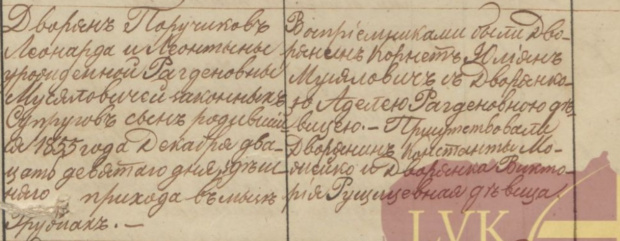 Дворянъ Поручиковъ
Леонарда и Леонтыны
урожденной Рагденовны
Мусяловичей законныхъ
Супруговъ сынъ родивший
ся 1855 года Декабря два-
цать девятаго дня, здѣш
няго прихода въ
Восприемниками были Дво-
рянинъ Корнетъ Юлiянъ
Мусяловичъ съ Дворянко-
ю Аделею Рагденовною дѣ-
вицею. — Присутствовали
Дворянинъ Константы Мо-
жейко и Дворянка Викто-
рiя дѣвица.
LVK